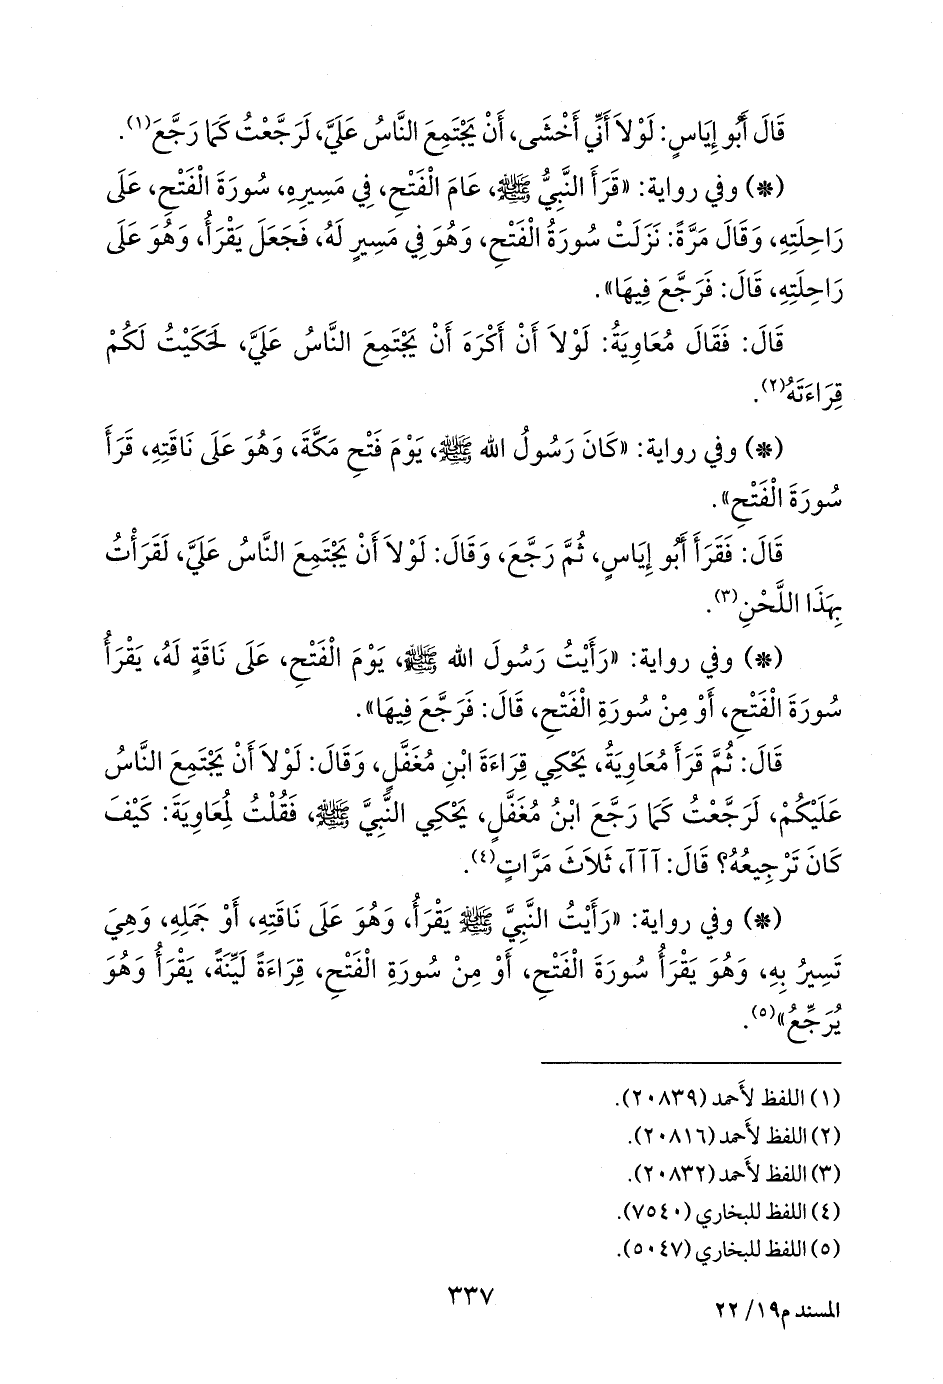 قَالَ أَبُو إِيَاسٍ: لَوْلاَ أَنِّي أَخْشَى، أَنْ يَجْتَمِعَ النَّاسُ عَلَيَّ، لَرَجَّعْتُ كَمَا رَجَّعَ(١).
(*) وفي رواية: «قَرَأَ النَّبِيُّ ﷺ، عَامَ الْفَتْحِ، فِي مَسِيرِهِ، سُورَةَ الْفَتْحِ، عَلَى
رَاحِلَتِهِ، وَقَالَ مَرَّةً: نَزَلَتْ سُورَةُ الْفَتْحِ، وَهُوَ فِي مَسِيرٍ لَهُ، فَجَعَلَ يَقْرَأُ، وَهُوَ عَلَى
رَاحِلَتِهِ، قَالَ: فَرَجَّعَ فِيهَا».
قَالَ: فَقَالَ مُعَاوِيَةُ: لَوْلاَ أَنْ أَكْرَهَ أَنْ يَجْتَمِعَ النَّاسُ عَلَيَّ، لَحَكَيْتُ لَكُمْ
قِرَاءَتَهُ(٢).
(*) وفي رواية: «كَانَ رَسُولُ الله ﷺ، يَوْمَ فَتْحِ مَكَّةَ، وَهُوَ عَلَى نَاقَتِهِ، قَرَأَ
سُورَةَ الْفَتْحِ».
قَالَ: فَقَرَأَ أَبُو إِيَاسٍ، ثُمَّ رَجَّعَ، وَقَالَ: لَوْلاَ أَنْ يَجْتَمِعَ النَّاسُ عَلَيَّ، لَقَرَأْتُ
بِهَذَا اللَّحْنِ(٣).
(*) وفي رواية: «رَأَيْتُ رَسُولَ الله ﷺ، يَوْمَ الْفَتْحِ، عَلَى نَاقَةٍ لَهُ، يَقْرَأُ
سُورَةَ الْفَتْحِ، أَوْ مِنْ سُورَةِ الْفَتْحِ، قَالَ: فَرَجَّعَ فِيهَا».
قَالَ: ثُمَّ قَرَأَ مُعَاوِيَةُ، يَحْكِي قِرَاءَةَ ابْنِ مُغَفَّلٍ، وَقَالَ: لَوْلاَ أَنْ يَجْتَمِعَ النَّاسُ
عَلَيْكُمْ، لَرَجَّعْتُ كَمَا رَجَّعَ ابْنُ مُغَفَّلٍ، يَحْكِي النَّبِيَّ ﷺ، فَقُلْتُ لِمُعَاوِيَةَ: كَيْفَ
كَانَ تَرْجِيعُهُ؟ قَالَ: آآآ، ثَلاَثَ مَرَّاتٍ(٤).
(*) وفي رواية: «رَأَيْتُ النَّبِيَّ ﷺ يَقْرَأُ، وَهُوَ عَلَى نَاقَتِهِ، أَوْ جَمَلِهِ، وَهِيَ
تَسِيرُ بِهِ، وَهُوَ يَقْرَأُ سُورَةَ الْفَتْحِ، أَوْ مِنْ سُورَةِ الْفَتْحِ، قِرَاءَةً لَيِّنَةً، يَقْرَأُ وَهُوَ
يُرَجِّعُ»(٥).
(١) اللفظ لأَحمد (٢٠٨٣٩).
(٢) اللفظ لأَحمد (٢٠٨١٦).
(٣) اللفظ لأَحمد (٢٠٨٣٢).
(٤) اللفظ للبخاري (٧٥٤٠).
(٥) اللفظ للبخاري (٥٠٤٧).
٣٣٧
المسند م١٩/ ٢٢